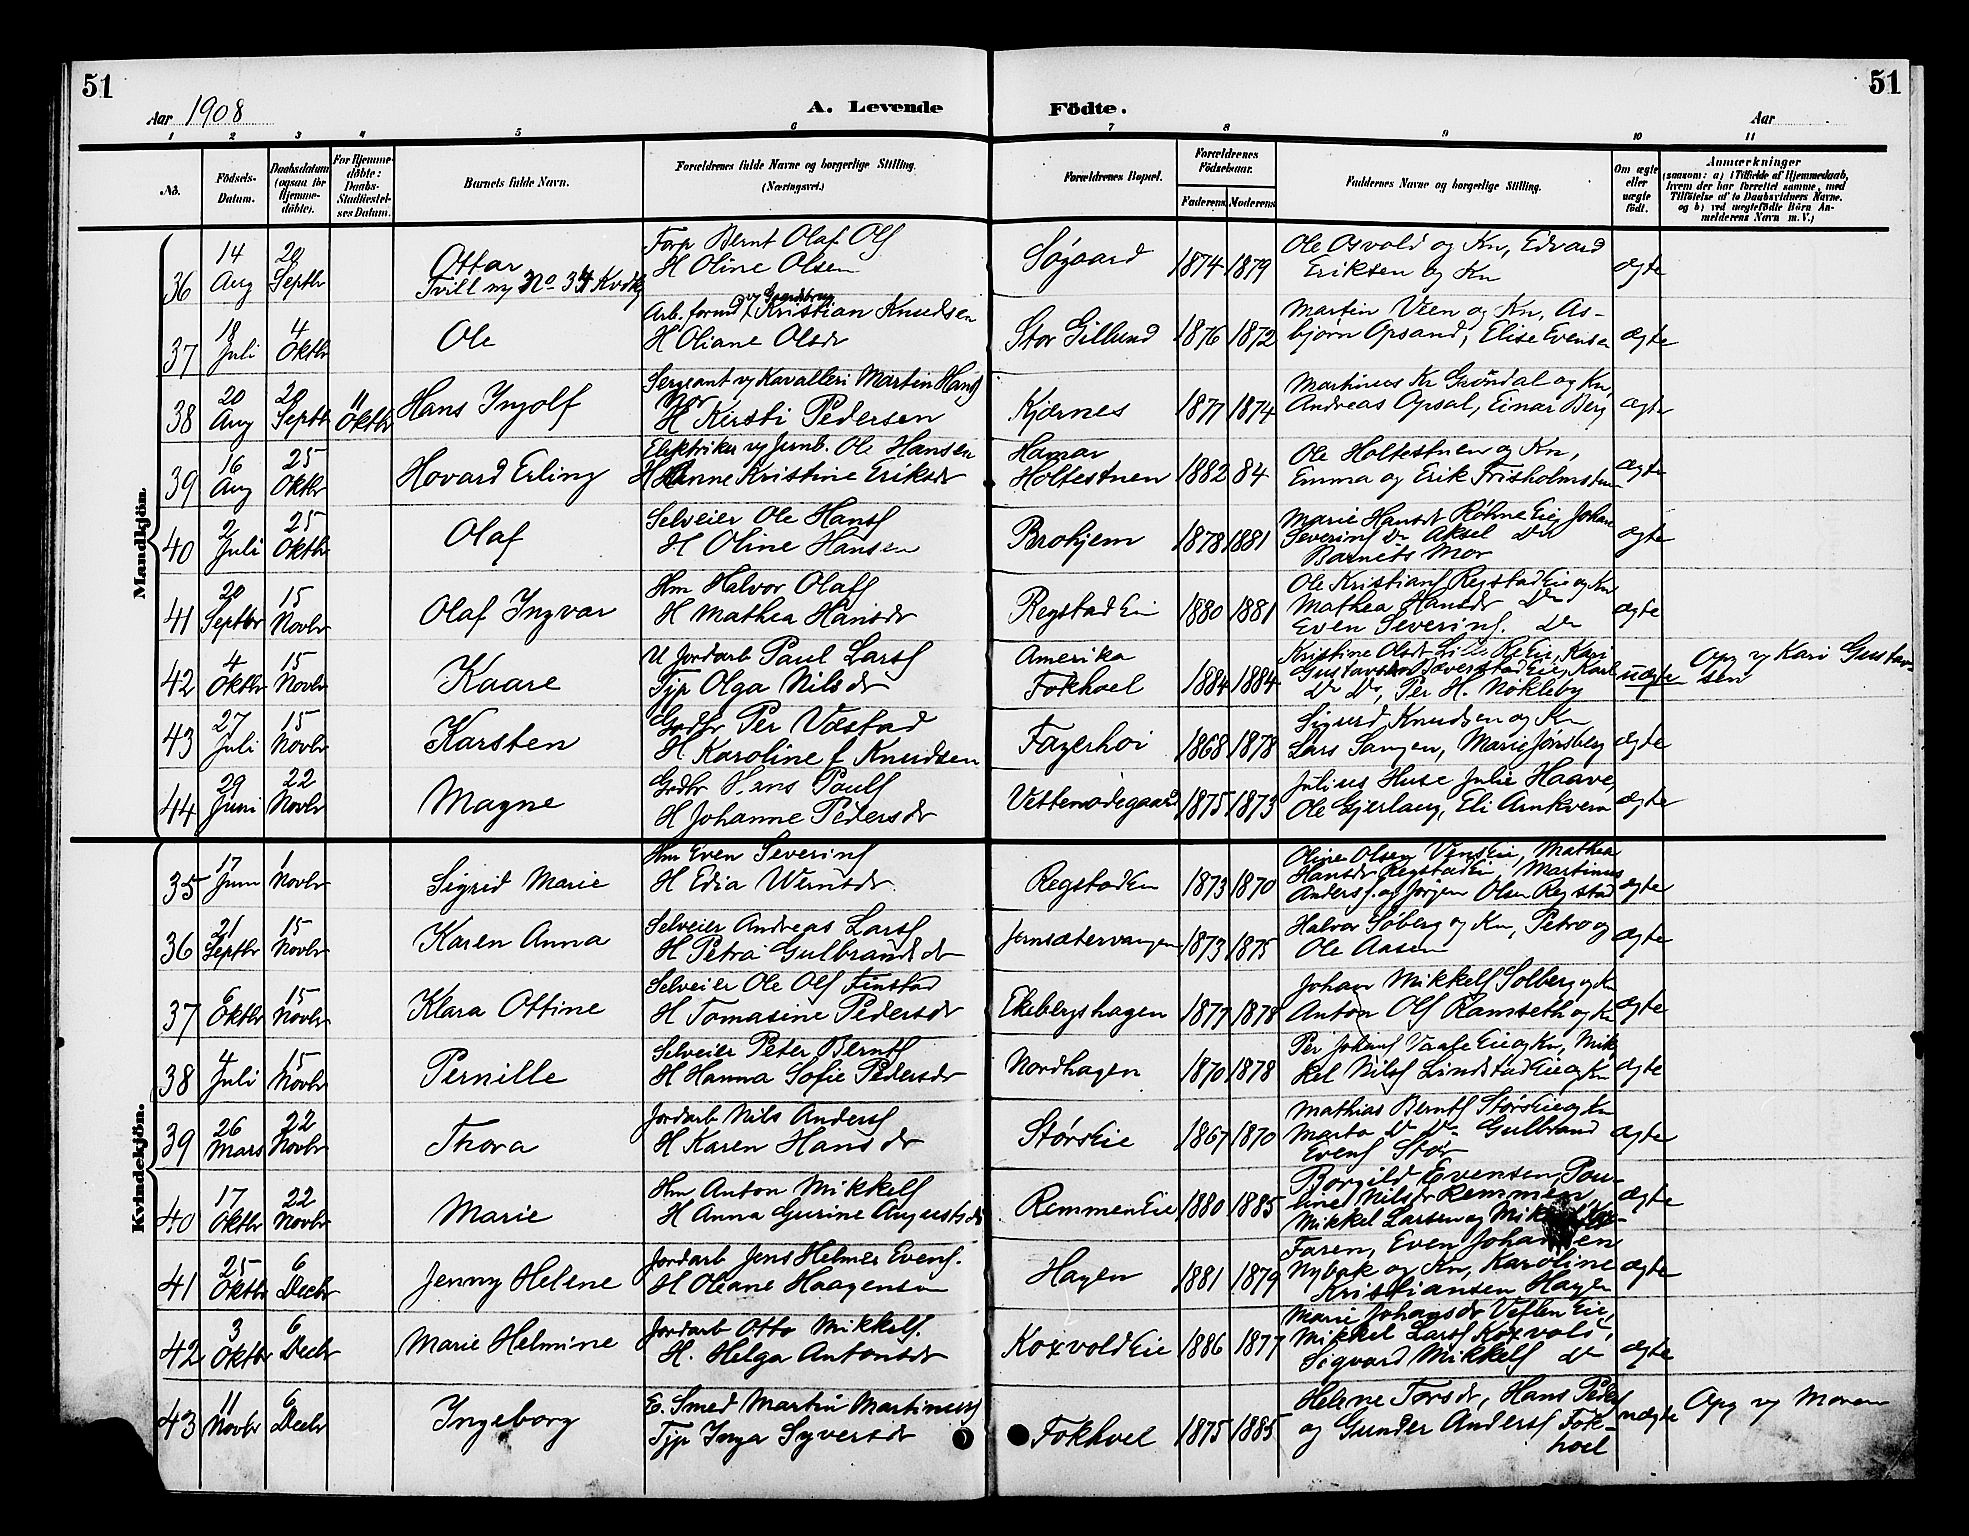 51
51
Aar 1908
A. Levende
Födte.
Aar
1 2 3 4 5 6 7 8 9 10 11
No.
Födsels-Datum.
Daabsdatum (ogsaa for Hjemmedöbte).
For Hjemmedöbte: Daabs-Stadfæstelses Datum.
Barnets fulde Navn.
Forældrenes fulde Navne og borgerlige Stilling. (Næringsvei.)
Forældrenes Bopæl.
Forældrenes Födselsaar.
Faderens. Moderens.
Faddernes Navne og borgerlige Stilling.
Om ægte eller uægte födt.
Anmærkninger
(saasom: a) i Tilfælde af Hjemmedaab, hvem der har forrettet samme, med Tilföielse af to Daabsvidners Navne. og b) ved uægtefödte Börn Anmelderens Navn m. V.)
Mandkjön.
36 14 Aug 20 Septbr Ottar Tvill m No 34 Kvdkj Forp Bernt Olaf Ols H Oline Olsen Søgaard 1874 1879 Ole Osvold og Kn, Edvard Eriksen og Kn ægte
37 18 Juli 4 Oktbr Ole Arb. form v Gaardsbrug Kristian Knudsen H Oliane Olsdr Stor Gillund 1876 1872 Martin Veen og Kn, Asbjørn Opsand, Elise Evensen ægte
38 20 Aug 20 Septbr 11 Oktbr Hans Ingolf Sergeant v Kavalleri Martin Hans Mor H Kirsti Pedersen Kjernes 1877 1874 Martinus Kr Grøndal og Kn, Andreas Opsal, Einar Berg ægte
39 16 Aug 25 Oktbr Hovard Erling Elektriker v Jernb. Ole Hansen H Anne Kristine Eriksdr Hamar Holtestuen 1882 84 Ole Holtestuen og Kn, Emma og Erik Frisholmstuen ægte
40 2 Juli 25 Oktbr Olaf Selveier Ole Hans H Oline Hansen Brohjem 1878 1881 Marie Hansdr Røhne Eie, Johan Severins Do Aksel Do Barnets Mor ægte
41 20 Septbr 15 Novbr Olaf Ingvar Hm Halvor Olafs H Mathea Hansdr Regstad Eie 1880 1881 Ole Kristians Regstad Eie og Kn Mathea Hansdr Do Even Severins. Do ægte
42 4 Oktbr 15 Novbr Kaare U Jordarb Paul Lars Tjp Olga Nilsdr Amerika Fokhoel 1884 1884 Kristine Olsdr Lille Re Eie, Kari Gustavsdr Sæverstad Eie, Karl Do Do, Per H. Nøkleby uægte Opg v Kari Gustavsen
43 27 Juli 15 Novbr Karsten Gadbr Per Væstad H Karoline f Knudsen Fagerhoi 1868 1878 Sigurd Knudsen og Kn Lars Sangen, Marie Jønsberg ægte
44 29 Juni 22 Novbr Magne Gadbr Hans Pauls H Johanne Pedersdr Vettenødegaard 1875 1873 Julius Huse Julie Haave, Ole Gjerlaug, Eli Arnkvern ægte
Kvindekjön.
35 17 Juni 1 Novbr Sigrid Marie Hm Even Severins H Edia Wernsdr. Regstad Eie 1873 1870 Oline Olsen Vens Eie, Mathea Hansdr Regstad Eie, Martinus Anders. og Jørgen Olsen Regstad ægte
36 21 Septbr 15 Novbr Karen Anna Selveier Andreas Lars H Petra Gulbrandsdr Jernsætervangen 1873 1875 Halvor Søberg og Kn, Petro og Ole Aasen ægte
37 6 Oktbr 15 Novbr Klara Ottine Selveier Ole Ols Finstad H Tomasine Pedersdr Ekebergshagen 1877 1878 Johan Mikkels Solberg og Kn Anton Ols Ramseth og Kn ægte
38 4 Juli 15 Novbr Pernille Selveier Peter Bernts H Hanna Sofie Pedersdr Nordhagen 1870 1878 Per Johans Vaale Eie og Kn, Mikkel Nils Lindstad Eie og Kn ægte
39 26 Mars 22 Novbr Thora Jordarb Nils Anders H Karen Hansdr Størs Eie 1867 1870 Mathias Bernts Størs Eie og Kn Marta Do Do Gulbrand Evens Stør ægte
40 17 Oktbr 22 Novbr Marie Hm Anton Mikkels H Anna Gurine Augustsdr Remmen Eie 1880 1885 Borgild Evensen, Pauline Nilsdr Remmen Mikkel Larsen og ægte
41 25 Oktbr 6 Decbr Jenny Helene Jordarb Jens Helmer Evens. H Oleane Haagensen Hagen 1881 1879 Faren, Even Johansen Nybak og Kn, Karoline Kristiansen Hagen ægte
42 3 Oktbr 6 Decbr Marie Helmine Jordarb Otto Mikkels. H. Helga Antonsdr Koxvold Eie 1886 1877 Marie Johansdr Veflen Eie, Mikkel Lars Koxvold, Sigvard Mikkels Do ægte
43 11 Novbr 6 Decbr Ingeborg E. Smed Martin Martinus Tjp Inga Syversdr Fokhoel 1875 1885 Helene Torsdr, Hans Peders og Gunder Anders Fokhoel uægte Opg v Moren